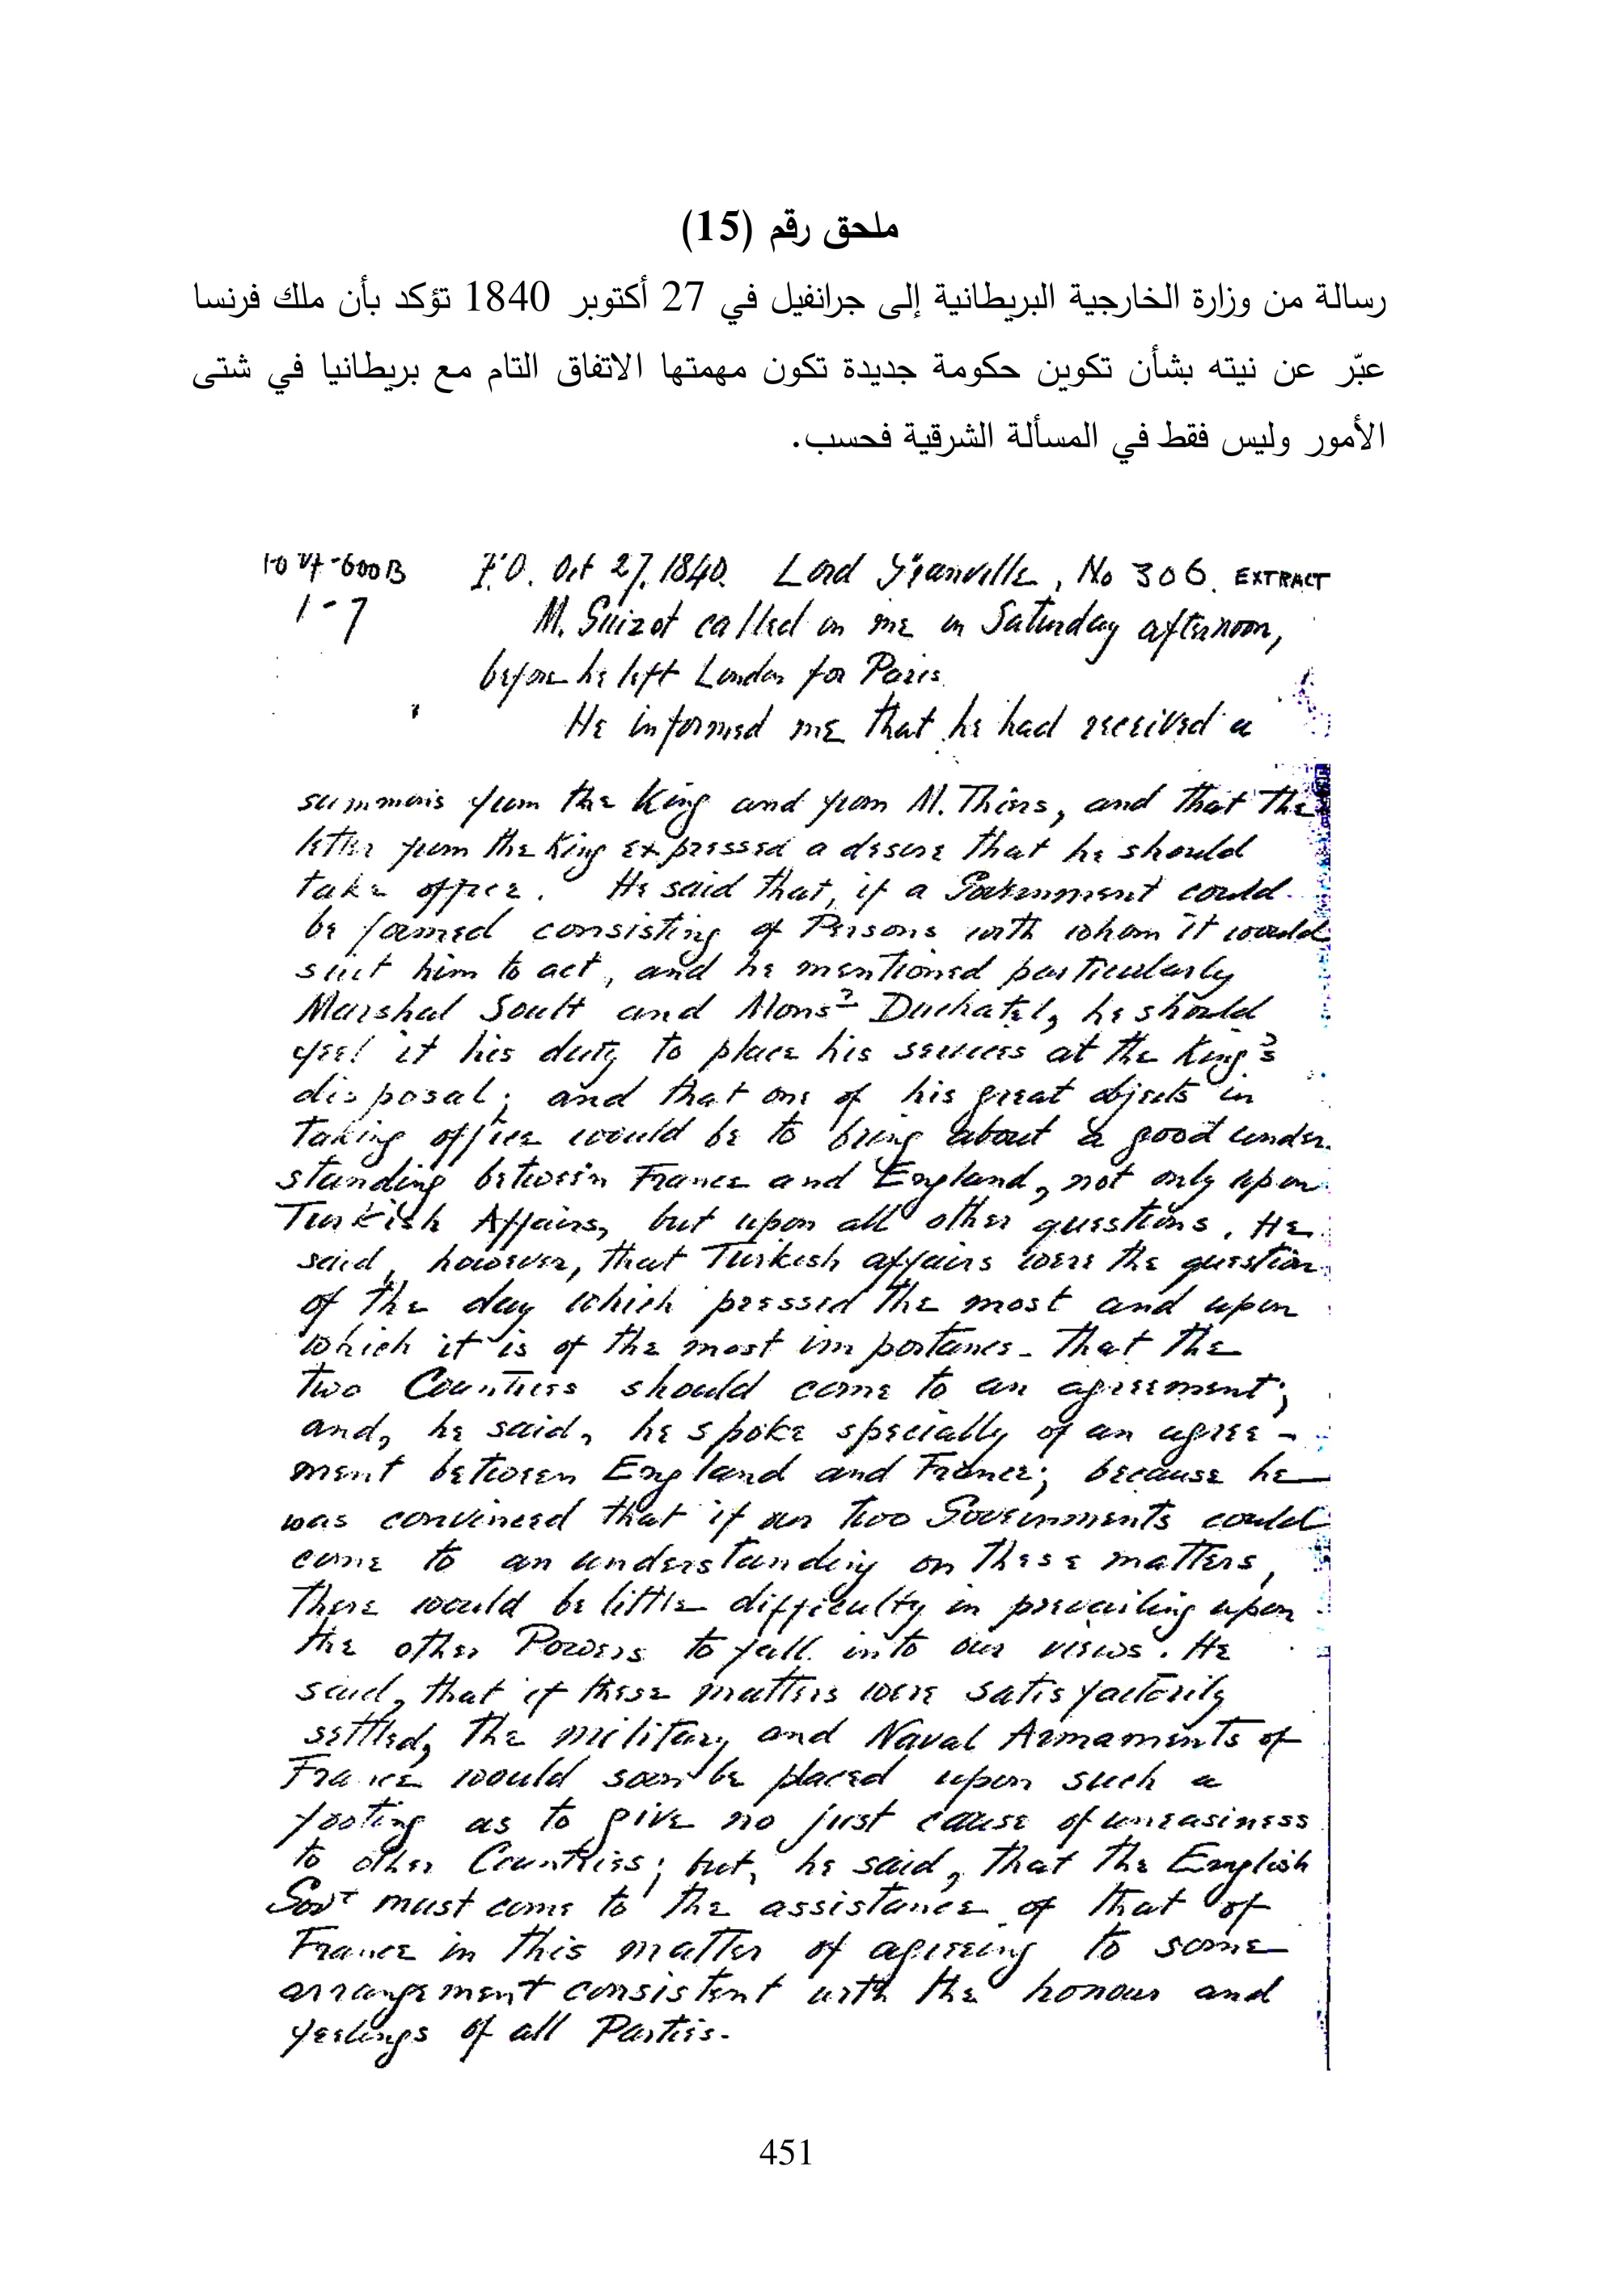 ملحق رقم (15)
رسالة من وزارة الخارجية البريطانية إلى جرانفيل في 27 أكتوبر 1840 تؤكد بأن ملك فرنسا
عبّر عن نيته بشأن تكوين حكومة جديدة تكون مهمتها الاتفاق التام مع بريطانيا في شتى
الأمور وليس فقط في المسألة الشرقية فحسب.
F.O. Oct 27. 1840. Lord Granville, No 306. EXTRACT
1-7
M. Guizot called on me on Saturday afternoon,
before he left London for Paris.
He informed me that he had received a
summons from the King and from M. Thiers, and that the
letter from the King expressed a desire that he should
take office. He said that, if a Government could
be formed consisting of Persons with whom it would
suit him to act, and he mentioned particularly
Marshal Soult and Monsr Duchatel, he should
feel it his duty to place his services at the King's
disposal; and that one of his great objects in
taking office would be to bring about a good under
standing between France and England, not only upon
Turkish Affairs, but upon all other questions. He
said, however, that Turkish affairs were the question
of the day which pressed the most and upon
which it is of the most importance - that the
two Countries should come to an agreement;
and, he said, he spoke specially of an agree -
ment between England and France; because he
was convinced that if our two Governments could
come to an understanding on these matters,
there would be little difficulty in prevailing upon
the other Powers to fall into our views. He
said, that if these matters were satisfactorily
settled, the military and Naval Armaments of
France would soon be placed upon such a
footing as to give no just cause of uneasiness
to other Countries; but, he said, that the English
Govt must come to the assistance of that of
France in this matter of agreeing to some
arrangement consistent with the honour and
feelings of all Parties.
451